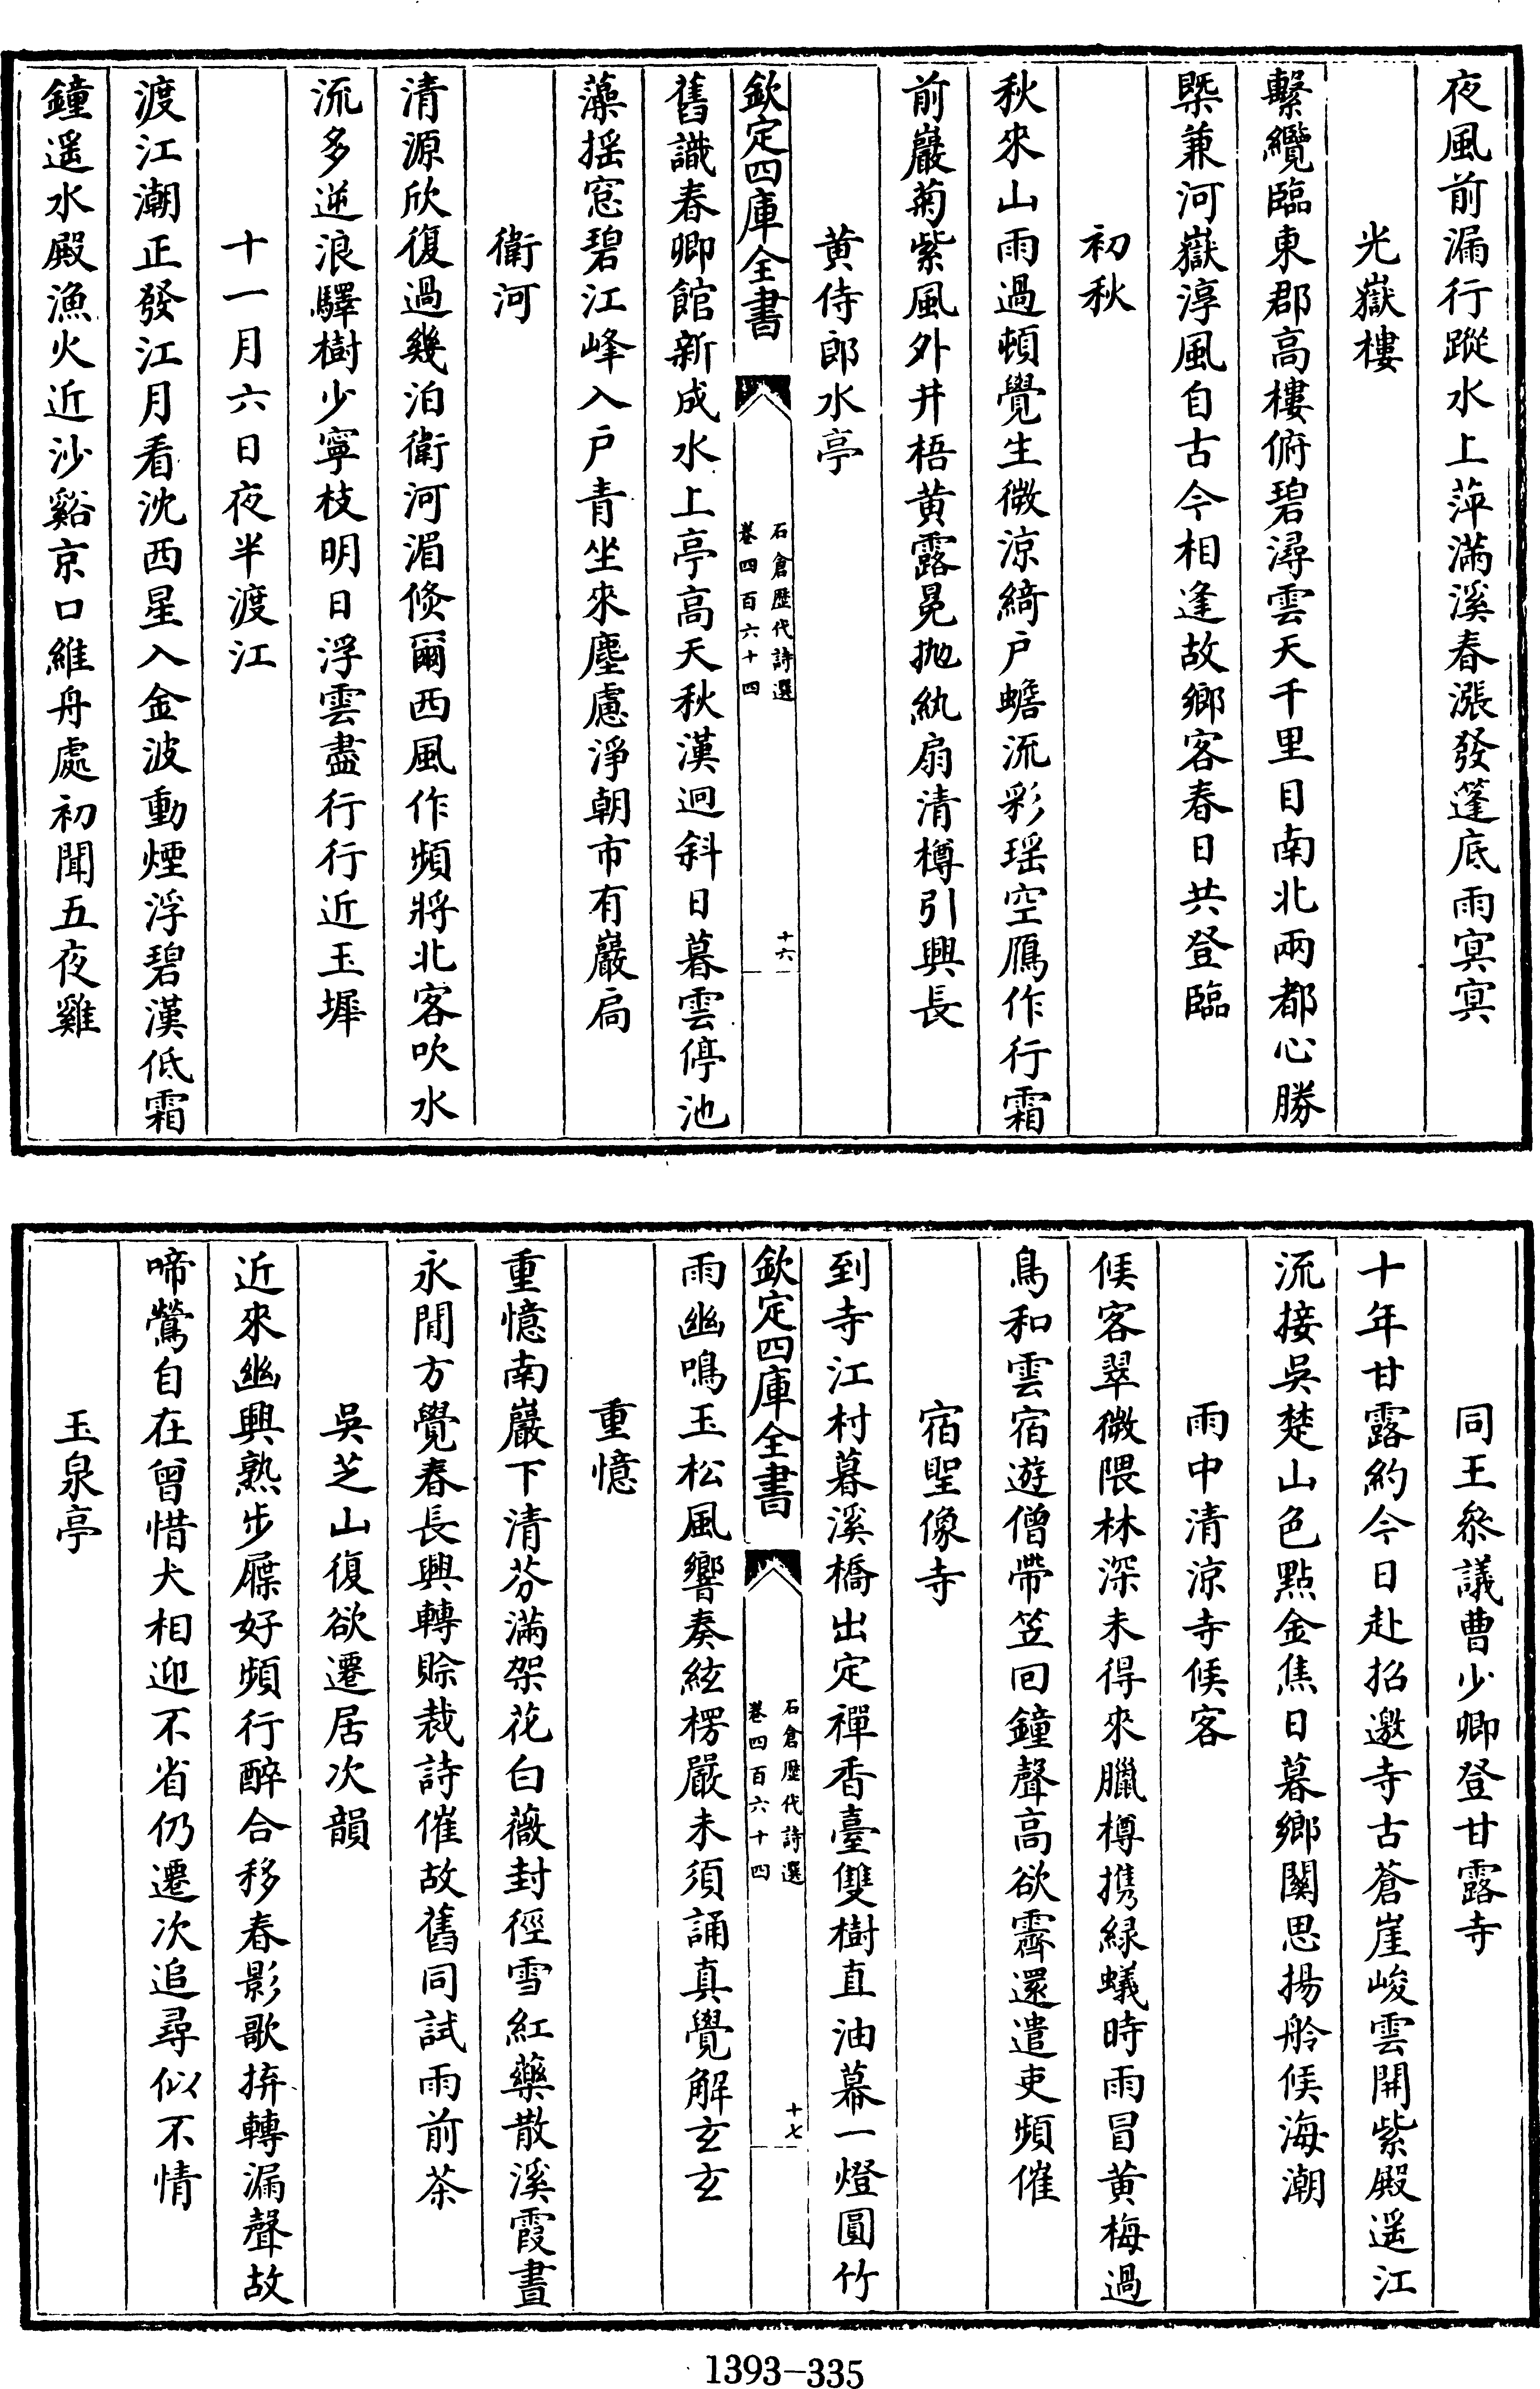 夜風前漏行蹤水上萍滿溪春漲發篷底雨冥冥
光嶽樓
繫纜臨東郡高樓俯碧潯雲天千里目南北兩都心勝
槩兼河嶽淳風自古今相逢故鄉客春日共登臨
初秋
秋來山雨過頓覺生微涼綺户蟾流彩瑶空鴈作行霜
前巖菊紫風外井梧黄露冕抛紈扇清樽引興長
黄侍郎水亭
欽定四庫全書
石倉歴代詩選
卷四百六十四
十六
舊識春卿館新成水上亭高天秋漢迥斜日暮雲停池
藻揺窓碧江峰入户青坐來塵慮淨朝市有巖扃
衛河
清源欣復過幾泊衛河湄倐爾西風作頻將北客吹水
流多逆浪驛樹少寧枝明日浮雲盡行行近玉墀
十一月六日夜半渡江
渡江潮正發江月看沈西星入金波動煙浮碧漢低霜
鐘遥水殿漁火近沙谿京口維舟處初聞五夜雞
同王叅議曹少卿登甘露寺
十年甘露約今日赴招邀寺古蒼崖峻雲開紫殿遥江
流接吳楚山色點金焦日暮鄉關思揚舲候海潮
雨中清涼寺候客
候客翠微隈林深未得來臘樽携緑蟻時雨冒黄梅過
鳥和雲宿遊僧帶笠回鐘聲高欲霽還遣吏頻催
宿聖像寺
到寺江村暮溪橋出定禪香臺雙樹直油幕一燈圓竹
欽定四庫全書
石倉歴代詩選
卷四百六十四
十七
雨幽鳴玉松風響奏絃楞嚴未須誦真覺解玄玄
重憶
重憶南巖下清芬滿架花白薇封徑雪紅藥散溪霞晝
永閒方覺春長興轉賖裁詩催故舊同試雨前茶
吳芝山復欲遷居次韻
近來幽興熟步屧好頻行醉合移春影歌拚轉漏聲故
啼鶯自在曾惜犬相迎不省仍遷次追尋似不情
玉泉亭
1393-335